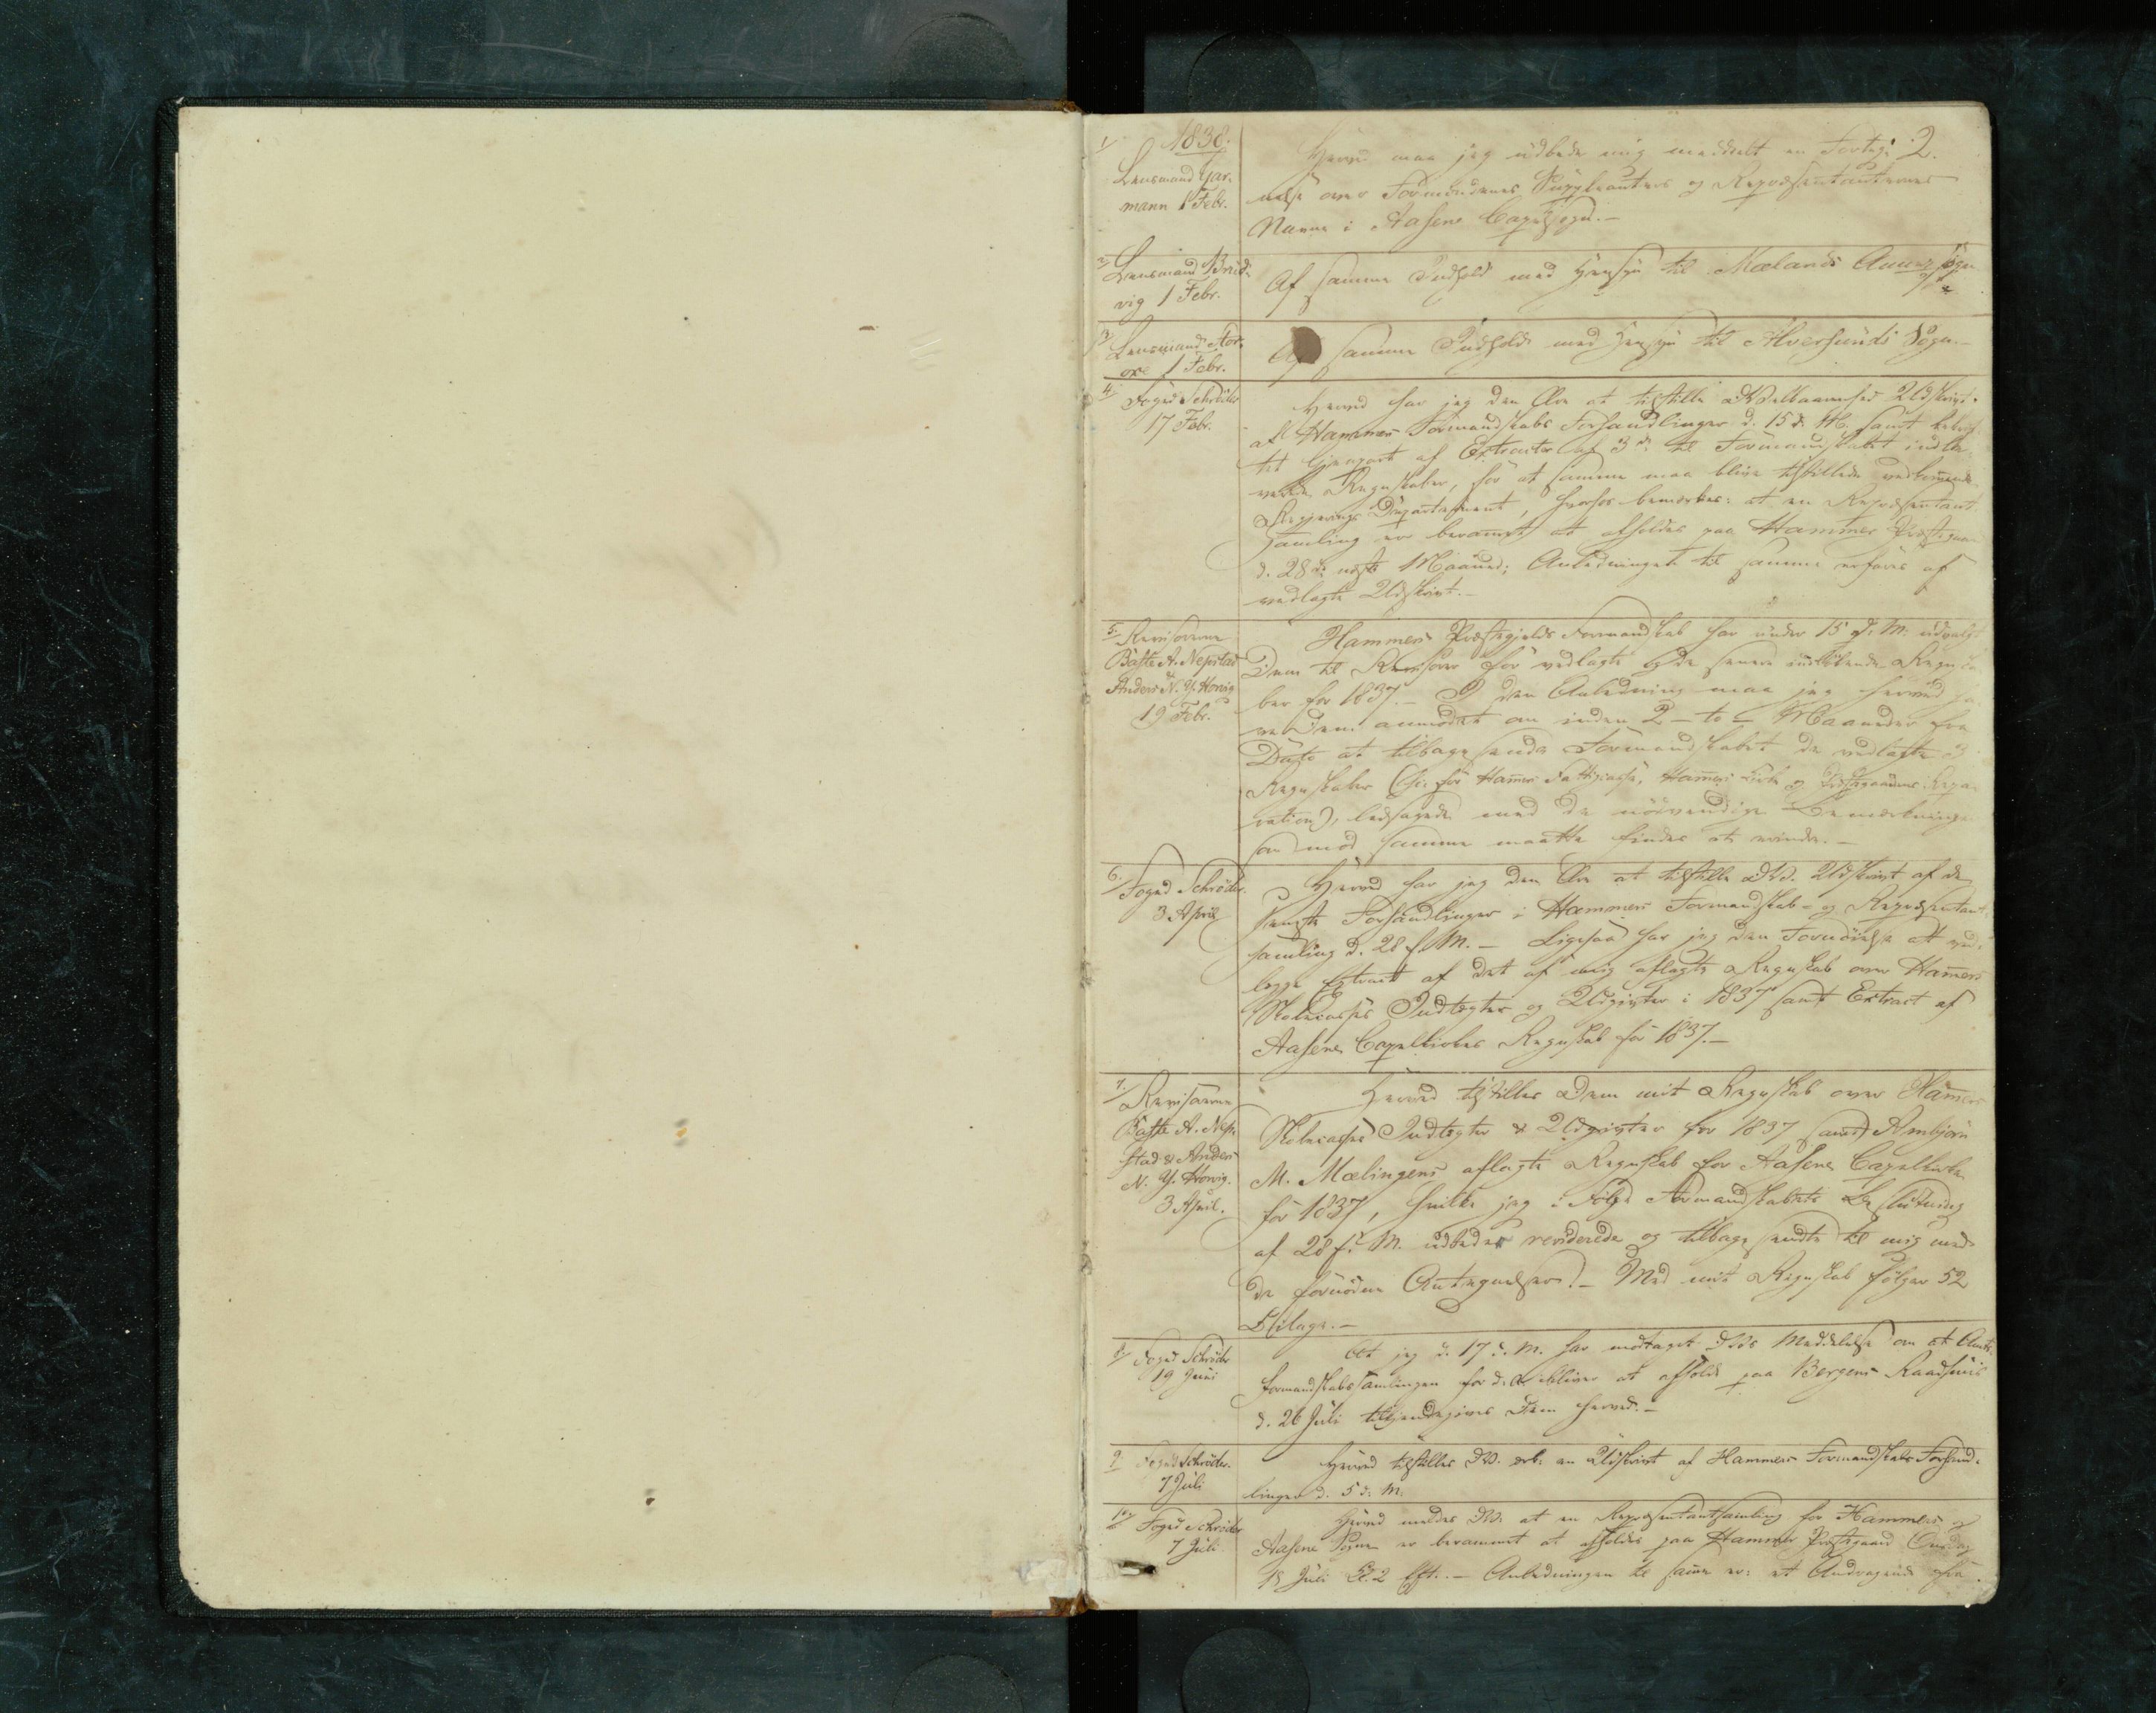 2.
1838.
1/ Lensmand Gar-
mann 1 Febr.
Herved maa jeg udbede mig meddelt en Forteg-
nelse over Formændenes Suppleanters og Repræsentanternes
Navne i Aasene Capelsogn.-
2/ Lensmand Brud-
vig 1 Febr.
Af samme Indhold med Hensyn til Mælands Annexsogn
3/ Lensmand
1 Febr.
Af samme Indhold med Hensyn til Alversunds Sogn.-
4. Foged Schrøder
17 Febr.
Herved har jeg den Ære at tilstille Udskrivt
af Hammers Formandskabs Forhandlinger d. 15 d. M. samt
Gjenpart af Extracter af 3de til Formandskabet indle-
verede Regnskaber, for at samme maa blive tilstillede vedkommende
Regjerings Departement, hvorhos bemærkes: at en Repræsentant-
samling er berammet at afholdes paa Hammer Præstegaard
d. 28de næste Maaned; Anledningen til samme erfares af
vedlagte Udskrivt.-
5. Revisorerne
Baste A. Nepstad
Anders N. Y. Horvig
19 Febr.
Hammers Præstegjelds Formandskab har under 15 d. M. udvalgt
Dem til Revisorer for vedlagte og de senere indkommende Regnska-
ber for 1837.- I den Anledning maa jeg herved ha-
ve Dem anmodet om inden 2 - to - Maaneder fra
Dato at tilbagesende Formandskabet de vedlagte 3
Regnskaber (for Hammers Fattigcasse, Hammers Kirke og Præstegaardens Repa-
ration), ledsagede med de nødvendige Bemærkninger
som mod samme maatte findes at erindre.-
6. Foged Schrøder.
3 April
Herved har jeg den Ære at tilstille Udskrivt af de
seneste Forhandlinger i Hammers Formandskab- og Repræsentant-
samling d. 28 f. M. - Ligesaa har jeg den Fornøielse at ved-
lægge Extract af det af mig aflagte Regnskab over Hammers
Skolecasses Indtægter og Udgivter i 1837 samt Extract af
Aasene Capelkirkes Regnskab for 1837.-
7. Revisorerne
Baste A. Nep-
stad & Anders
N. Y. Horvig.
3 April.
Herved tilstilles Dem mit Regnskab over Hammers
Skolecasses Indtægter & Udgivter for 1837 samt Ambjørn
M. Mælingens aflagte Regnskab for Aasene Capelkirke
for 1837, hvilke jeg i Følge Formandskabets Beslutning
af 28 f. M. udbeder reviderede og tilbagesendte til mig med
de fornødne Antegnelser.- Med mit Regnskab følger 52
Bilage.-
8/ Foged Schrøder
19 Juni
At jeg d. 17 d. M. har modtaget Meddelelse om at Amts-
formandskabssamlingen for d. A. bliver at afholde paa Bergens Raadhuus
d. 26 Juli tilkjendegives Dem herved.-
9 Foged Schrøder.
7 Juli
Herved tilstilles en Udskrivt af Hammers Formandskabs Forhand-
linger d. 5 d. M.
10/ Foged Schrøder
7 Juli
Herved meldes at en Repræsentantsamling for Hammers og
Aasene Sogne er berammet at afholdes paa Hammer Præstegaard Onsdag
18 Juli Kl. 2 Eft. - Anledningen til samme er: et Andragende